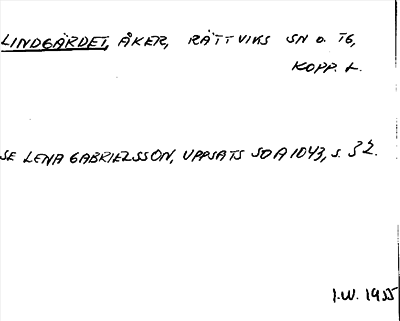 LINDGÄRDET, ÅKER, RÄTTVIKS SN o. TG,
KOPP. L.
SE LENA GABRIELSSON, UPPSATS SOA 1043, s. 32.
I.W. 1955